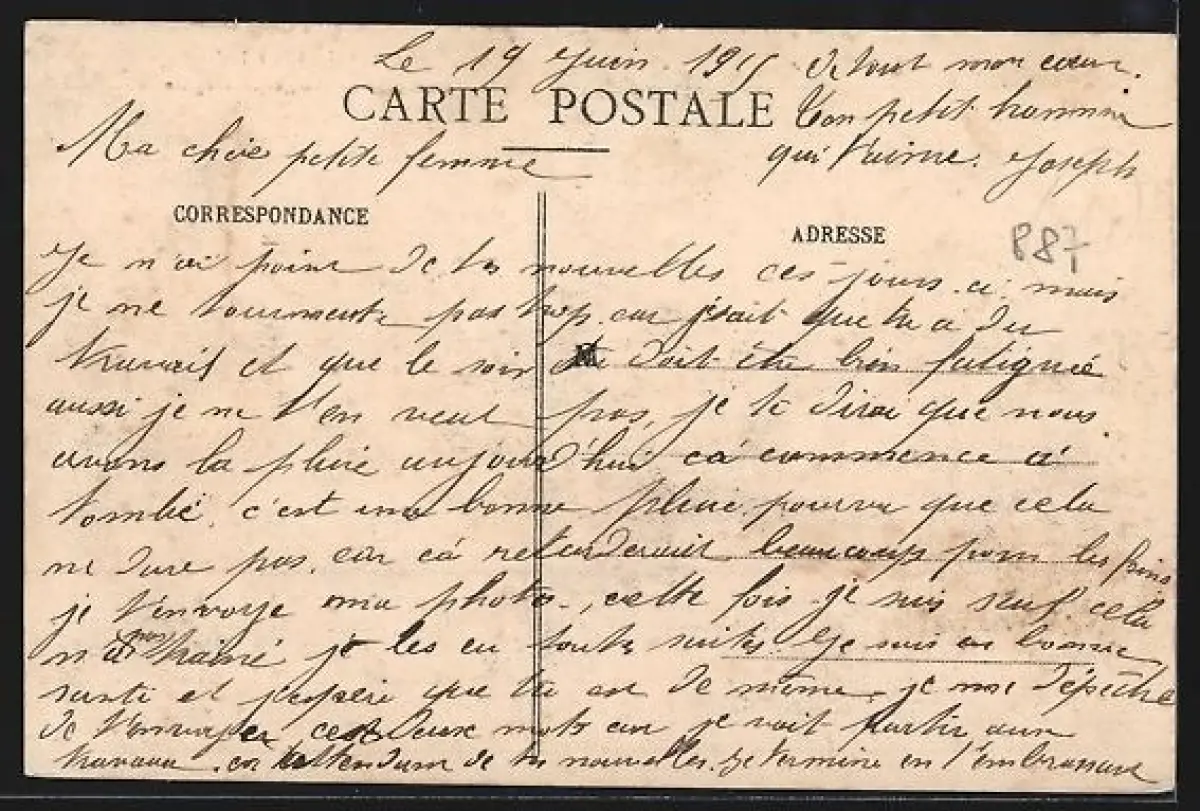 Le 19 Juin 1915
CARTE POSTALE
Ma chère petite femme
CORRESPONDANCE
ADRESSE
887
Je n'ai point de tes nouvelles ces jours-ci mais
je me tourmente pas trop car j'sait que tu a du
travail et que le soir tu doit être bien fatiguée
aussi je ne t'en veut pas, je te dirai que nous
avons la pluie aujourd'hui ca commence a
tombé, c'est une bonne pluie, pourvu que cela
ne dure pas, car ca retarderait beaucoup pour les foins
je t'envoye ma photo, cette fois je suis seul cela
n'a pas trainé je les eu toute suite, Je suis en bonne
santé et j'espère que tu est de même, je me dépêche
de t'envoyer ces deux mots car je vait partir aux
travaux, en attendant de tes nouvelles, je termine en t'embrassant
de tout mon cœur.
Ton petit homme
qui t'aime. Joseph